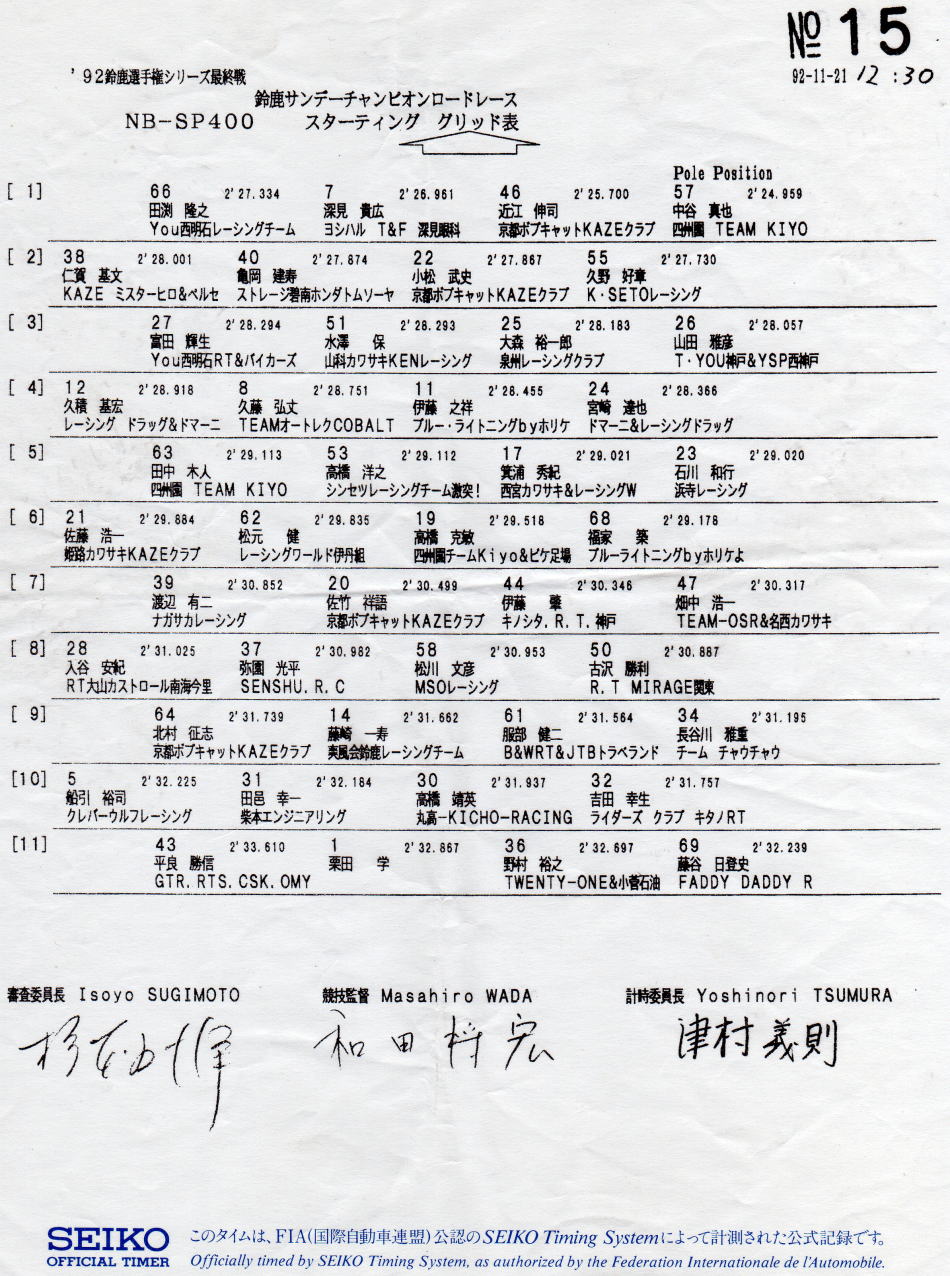 № 15
'92鈴鹿選手権シリーズ最終戦
92-11-21 12:30
鈴鹿サンデーチャンピオンロードレース
NB-SP400 スターティング グリッド表
Pole Position
[ 1] 66 2'27.334 7 2'26.961 46 2'25.700 57 2'24.959
田渕 隆之 深見 貴広 近江 伸司 中谷 真也
You西明石レーシングチーム ヨシハル T&F 深見眼科 京都ボブキャットKAZEクラブ 四州園 TEAM KIYO
[ 2] 38 2'28.001 40 2'27.874 22 2'27.867 55 2'27.730
仁賀 基文 亀岡 建寿 小松 武史 久野 好章
KAZE ミスターヒロ&ベルセ ストレージ碧南ホンダトムソーヤ 京都ボブキャットKAZEクラブ K・SETOレーシング
[ 3] 27 2'28.294 51 2'28.293 25 2'28.183 26 2'28.057
富田 輝生 水澤 保 大森 裕一郎 山田 雅彦
You西明石RT&バイカーズ 山科カワサキKENレーシング 泉州レーシングクラブ T・YOU神戸&YSP西神戸
[ 4] 12 2'28.918 8 2'28.751 11 2'28.455 24 2'28.366
久積 基宏 久藤 弘丈 伊藤 之祥 宮崎 達也
レーシング ドラッグ&ドマーニ TEAMオートレクCOBALT ブルー・ライトニングbyホリケ ドマーニ&レーシングドラッグ
[ 5] 63 2'29.113 53 2'29.112 17 2'29.021 23 2'29.020
田中 木人 高橋 洋之 箕浦 秀紀 石川 和行
四州園 TEAM KIYO シンセツレーシングチーム激突! 西宮カワサキ&レーシングW 浜寺レーシング
[ 6] 21 2'29.884 62 2'29.835 19 2'29.518 68 2'29.178
佐藤 浩一 松元 健 高橋 克敏 福家 築
姫路カワサキKAZEクラブ レーシングワールド伊丹組 四州園チームKiyo&ビケ足場 ブルーライトニングbyホリケよ
[ 7] 39 2'30.852 20 2'30.499 44 2'30.346 47 2'30.317
渡辺 有二 佐竹 祥語 伊藤 肇 畑中 浩一
ナガサカレーシング 京都ボブキャットKAZEクラブ キノシタ.R.T.神戸 TEAM-OSR&名西カワサキ
[ 8] 28 2'31.025 37 2'30.982 58 2'30.953 50 2'30.887
入谷 安紀 弥園 光平 松川 文彦 古沢 勝利
RT大山カストロール南海今里 SENSHU.R.C MSOレーシング R.T MIRAGE関東
[ 9] 64 2'31.739 14 2'31.662 61 2'31.564 34 2'31.195
北村 征志 藤崎 一寿 服部 健二 長谷川 雅重
京都ボブキャットKAZEクラブ 東風会鈴鹿レーシングチーム B&WRT&JTBトラベランド チーム チャウチャウ
[10] 5 2'32.225 31 2'32.184 30 2'31.937 32 2'31.757
船引 裕司 田邑 幸一 高橋 靖英 吉田 幸生
クレバーウルフレーシング 柴本エンジニアリング 丸高-KICHO-RACING ライダーズ クラブ キタノRT
[11] 43 2'33.610 1 2'32.867 36 2'32.697 69 2'32.239
平良 勝信 栗田 学 野村 裕之 藤谷 日登史
GTR.RTS.CSK.OMY TWENTY-ONE&小菅石油 FADDY DADDY R
審査委員長 Isoyo SUGIMOTO 競技監督 Masahiro WADA 計時委員長 Yoshinori TSUMURA
和田 将宏 津村義則
SEIKO このタイムは、FIA(国際自動車連盟)公認のSEIKO Timing Systemによって計測された公式記録です。
OFFICIAL TIMER Officially timed by SEIKO Timing System, as authorized by the Federation Internationale de l'Automobile.